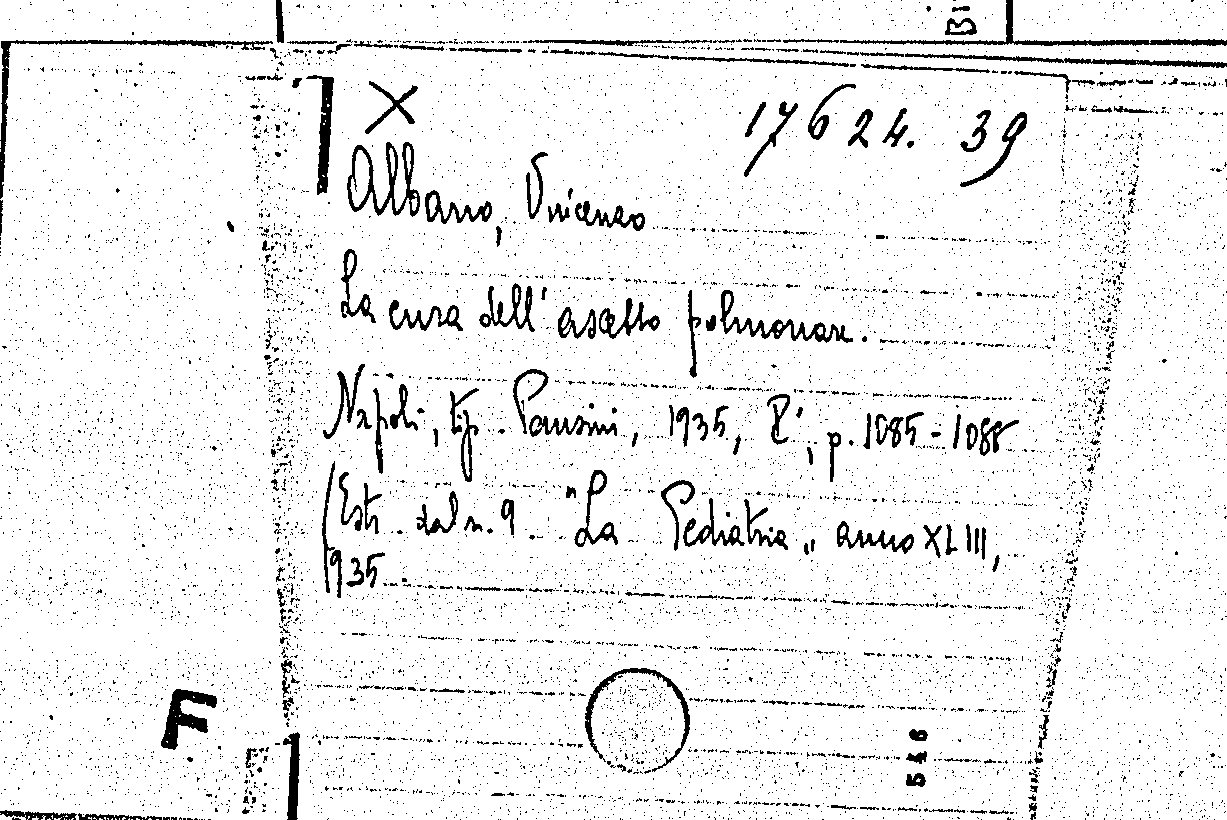 Bi
X
17624. 39
Albano, Vincenzo
La cura dell'ascesso polmonare.
Napoli, tip. Pansini, 1935, 8°, p. 1085-1088
(Estr. dal n. 9 "La Pediatria„ anno XLIII,
1935
F
546